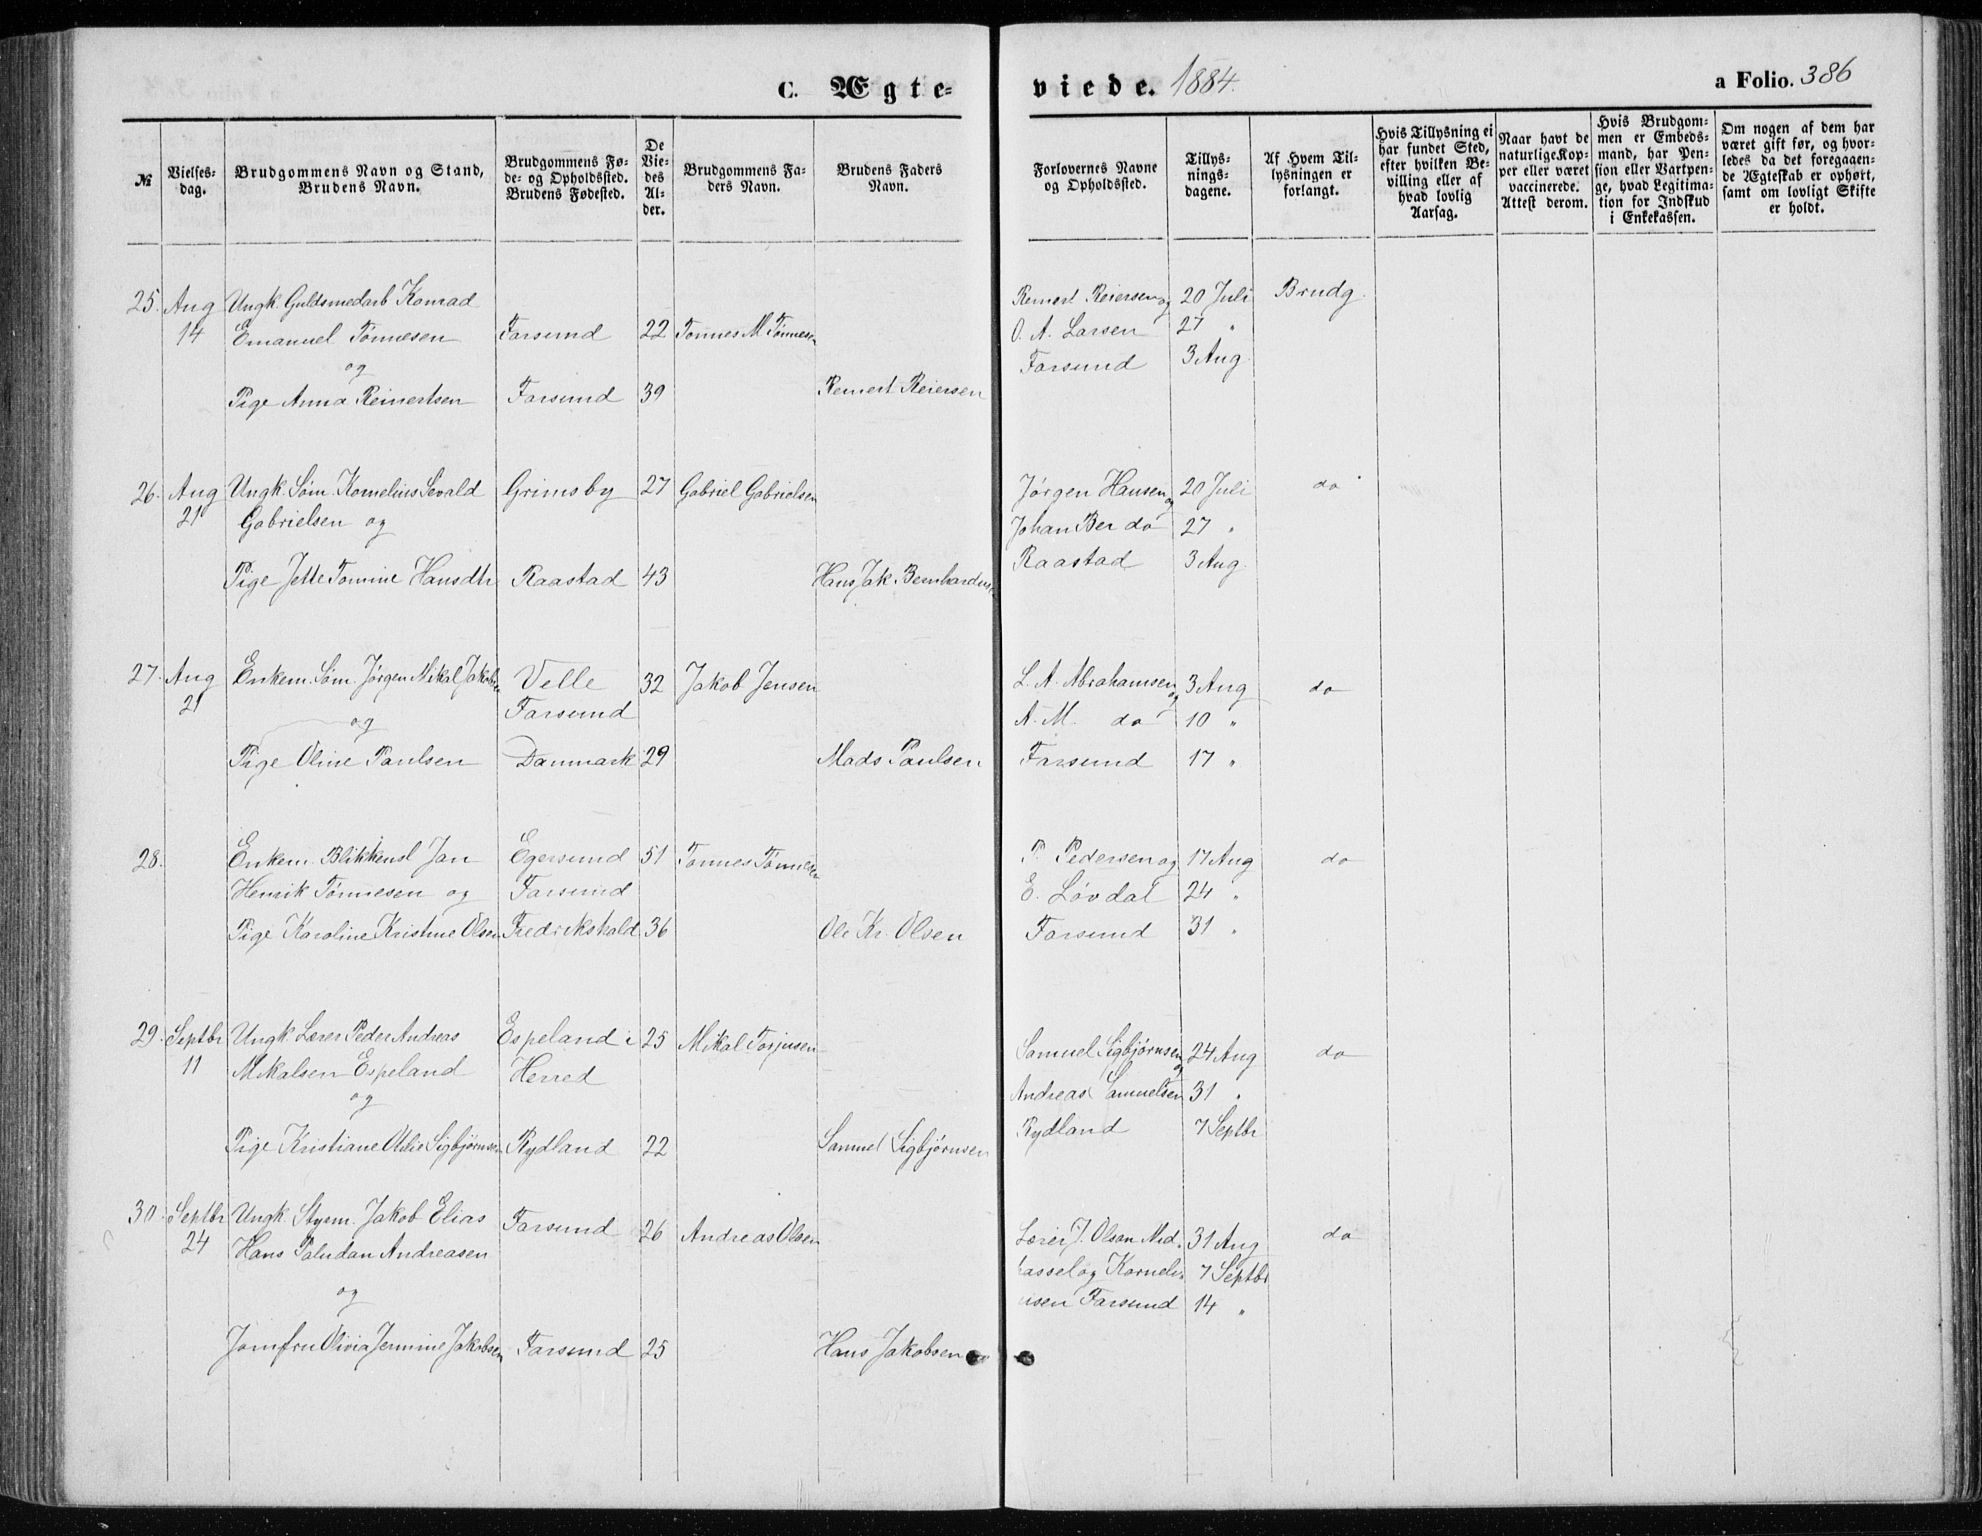 C. Ægte-
viede. 1884.
a Folio. 386
№
Vielses-
dag.
Brudgommens Navn og Stand,
Brudens Navn.
Brudgommens Fø-
de- og Opholdssted.
Brudens Fødested.
De
Vie-
des
Al-
der.
Brudgommens Fa-
ders Navn.
Brudens Faders
Navn.
Forlovernes Navne
og Opholdssted.
Tillys-
nings-
dagene.
Af Hvem Til-
lysningen er
forlangt.
Hvis Tillysning ei
har fundet Sted,
efter hvilken Be-
villing eller af
hvad lovlig
Aarsag.
Naar havt de
naturlige Kop-
per eller været
vaccinerede.
Attest derom.
Hvis Brudgom-
men er Embeds-
mand, har Pen-
sion eller Vartpen-
ge, hvad Legitima-
tion for Indskud
i Enkekassen.
Om nogen af dem har
været gift før, og hvor-
ledes da det foregaaen-
de Ægteskab er ophørt,
samt om lovligt Skifte
er holdt.
25. Aug Ungk. Guldsmedarb Konrad Reinert Reiersen og 20 Juli Brudg.
14 Emanuel Tønnesen Farsund 22 Tønnes M Tønnesen O. A. Larsen 27 "
og Farsund 3 Aug.
Pige Anna Reinertsen Farsund 39 Reinert Reiersen
26. Aug Ungk. Søm. Kornelius Sevald Grimsby 27 Gabriel Gabrielsen Jørgen Hansen og 20 Juli do
21 Gabrielsen og Johan Ber do 27 "
Pige Jette Tomine Hansdtr Raastad 43 Hans Jak. Bernhardsen Raastad 3 Aug.
27. Aug Enkem. Søm. Jørgen Mikal Jakobsen Velle 32 Jakob Jensen L. A. Abrahamsen og 3 Aug do
21 og Farsund A. M. do 10 "
Pige Oline Paulsen Danmark 29 Mads Paulsen Farsund 17 "
28. Enkem. Blikkensl Jan Egersund 51 Tønnes Tønnesen P. Pedersen og 17 Aug do
Henrik Tønnesen og Farsund E. Løvdal 24 "
Pige Karoline Kristine Olsen Fredrikshald 36 Ole Kr. Olsen Farsund 31 "
29. Septbr Ungk. Lærer Peder Andreas Espeland i 25 Mikal Torjusen Samuel Sigbjørnsen og 24 Aug do
11 Mikalsen Espeland Herred Andreas Samuelsen 31 "
og Rydland 7 Septbr
Pige Kristiane Otilie Sigbjørnsen Rydland 22 Samuel Sigbjørnsen
30. Septbr Ungk. Styrm. Jakob Elias Farsund 26 Andreas Olsen Lærer J. Olsen Ned 31 Aug do
24 Hans Paludan Andreasen hassel og Korneli 7 Septbr
og usen Farsund 14 "
Jomfru Olivia Jermine Jakobsen Farsund 25 Hans Jakobsen